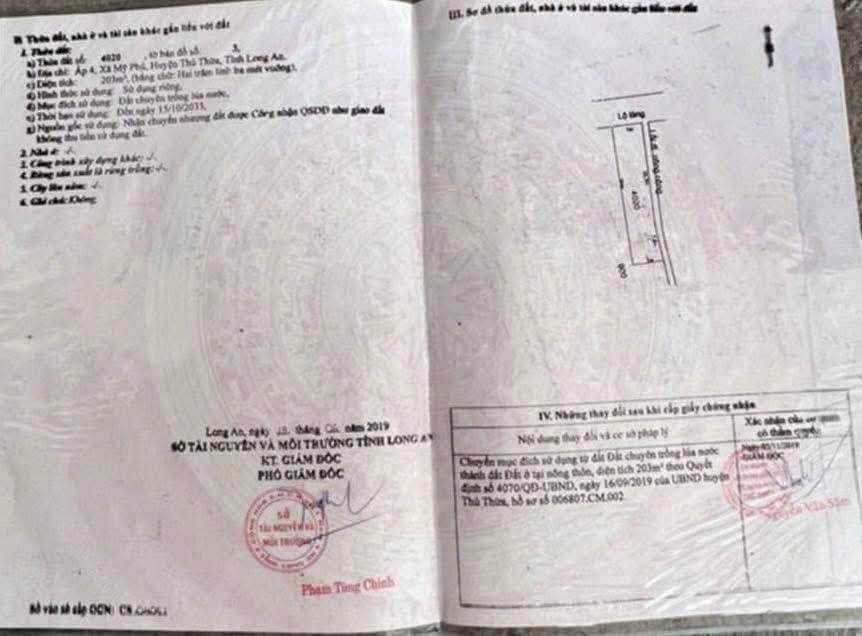 II. Thửa đất, nhà ở và tài sản khác gắn liền với đất
1. Thửa đất:
a) Thửa đất số: 4020 , tờ bản đồ số: 3,
b) Địa chỉ: Ấp 4, Xã Mỹ Phú, Huyện Thủ Thừa, Tỉnh Long An.
c) Diện tích: 203m², (bằng chữ: Hai trăm linh ba mét vuông),
d) Hình thức sử dụng: Sử dụng riêng,
đ) Mục đích sử dụng: Đất chuyên trồng lúa nước,
e) Thời hạn sử dụng: Đến ngày 15/10/2033,
g) Nguồn gốc sử dụng: Nhận chuyển nhượng đất được Công nhận QSDĐ như giao đất
không thu tiền sử dụng đất.
2. Nhà ở: -/-.
3. Công trình xây dựng khác: -/-.
4. Rừng sản xuất là rừng trồng: -/-.
5. Cây lâu năm: -/-.
6. Ghi chú: Không.
Long An, ngày tháng 06 năm 2019
SỞ TÀI NGUYÊN VÀ MÔI TRƯỜNG TỈNH LONG AN
KT. GIÁM ĐỐC
PHÓ GIÁM ĐỐC
SỞ
TÀI NGUYÊN VÀ
MÔI TRƯỜNG
Phạm Tùng Chinh
Số vào sổ cấp GCN: CS
III. Sơ đồ thửa đất, nhà ở và tài sản khác gắn liền với đất
Lộ làng
4020
900
IV. Những thay đổi sau khi cấp giấy chứng nhận
Nội dung thay đổi và cơ sở pháp lý
Xác nhận của cơ quan
có thẩm quyền
Chuyển mục đích sử dụng từ đất Đất chuyên trồng lúa nước
thành đất Đất ở tại nông thôn, diện tích 203m² theo Quyết
định số 4070/QĐ-UBND, ngày 16/09/2019 của UBND huyện
Thủ Thừa, hồ sơ số 006807.CM.002.
GIÁM ĐỐC
Nguyễn Văn